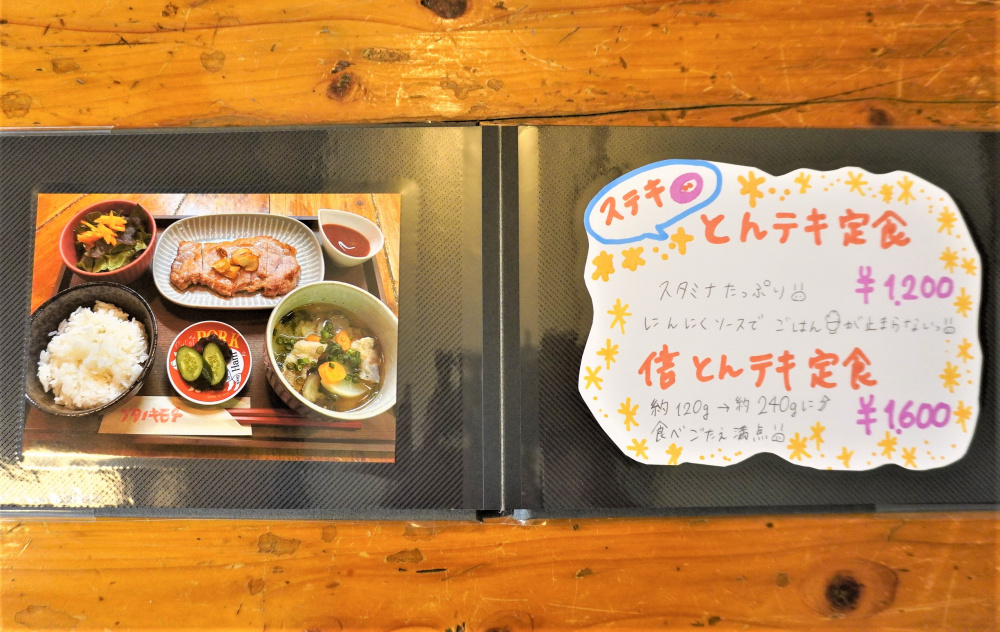 PORK
Ham
ブタノキモチ
ステキ
とんテキ定食
スタミナたっぷり
¥1,200
にんにくソースで ごはんが止まらないっ
倍とんテキ定食
約120g→約240gに
食べごたえ満点
¥1,600